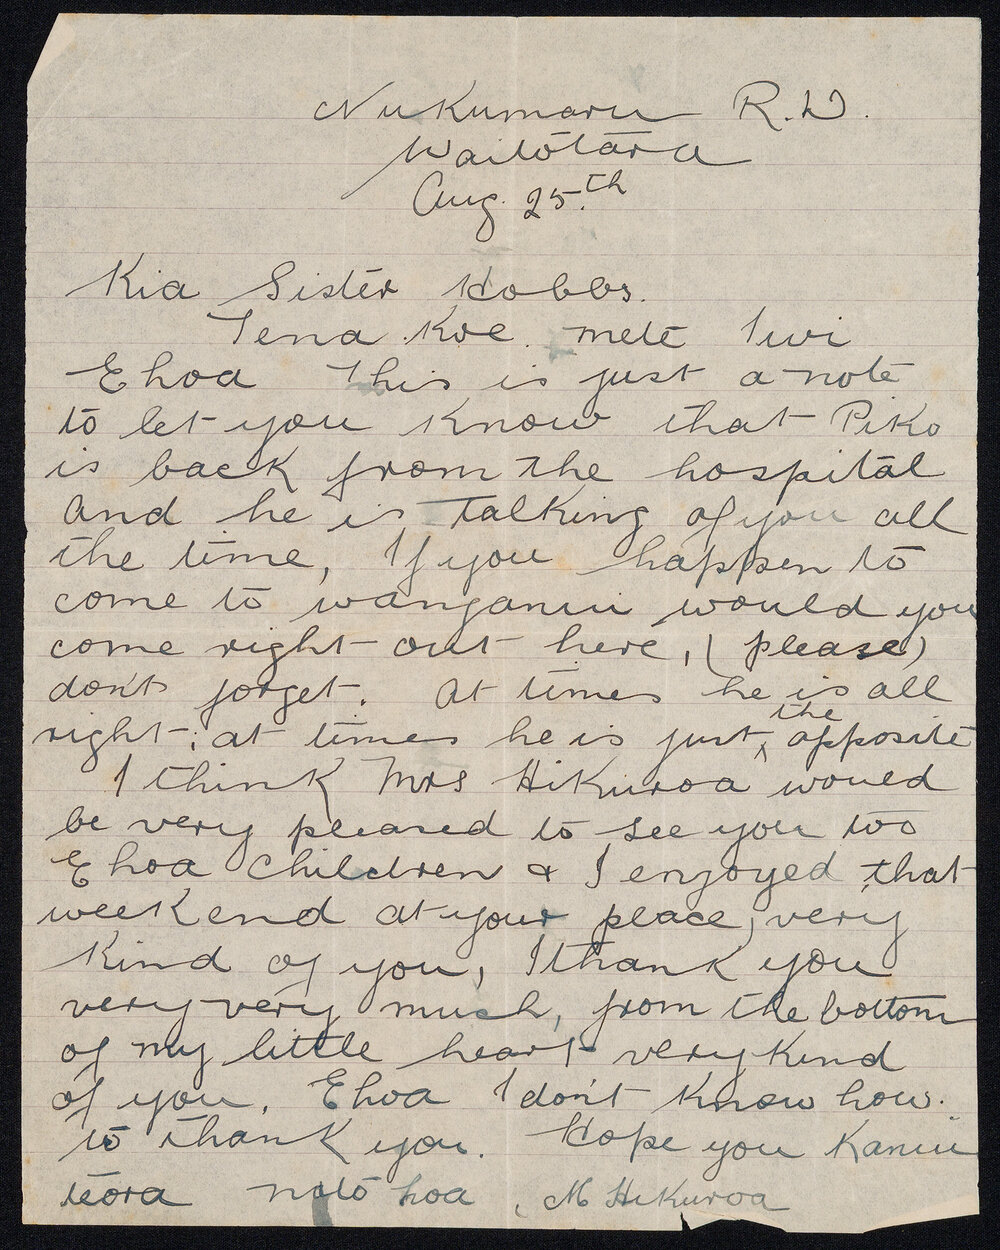 Nukumaru R.D.
Waitotara
Aug. 25.th
Kia Sister Hobbs.
Tena Koe. mete Iwi
Ehoa This is just a note
to let you know that Piko
is back from the hospital
and he is talking of you all
the time, If you happen to
come to wanganui would you
come right out here, (please)
don't forget. At times he is all
right; at times he is just the opposite
I think Mrs Hikuroa would
be very pleased to see you too
Ehoa children & I enjoyed that
weekend at your place, very
kind of you, I thank you
very very much, from the bottom
of my little heart very kind
of you. Ehoa I don't know how.
to thank you. Hope you Kanui
teora nato hoa, M Hikuroa